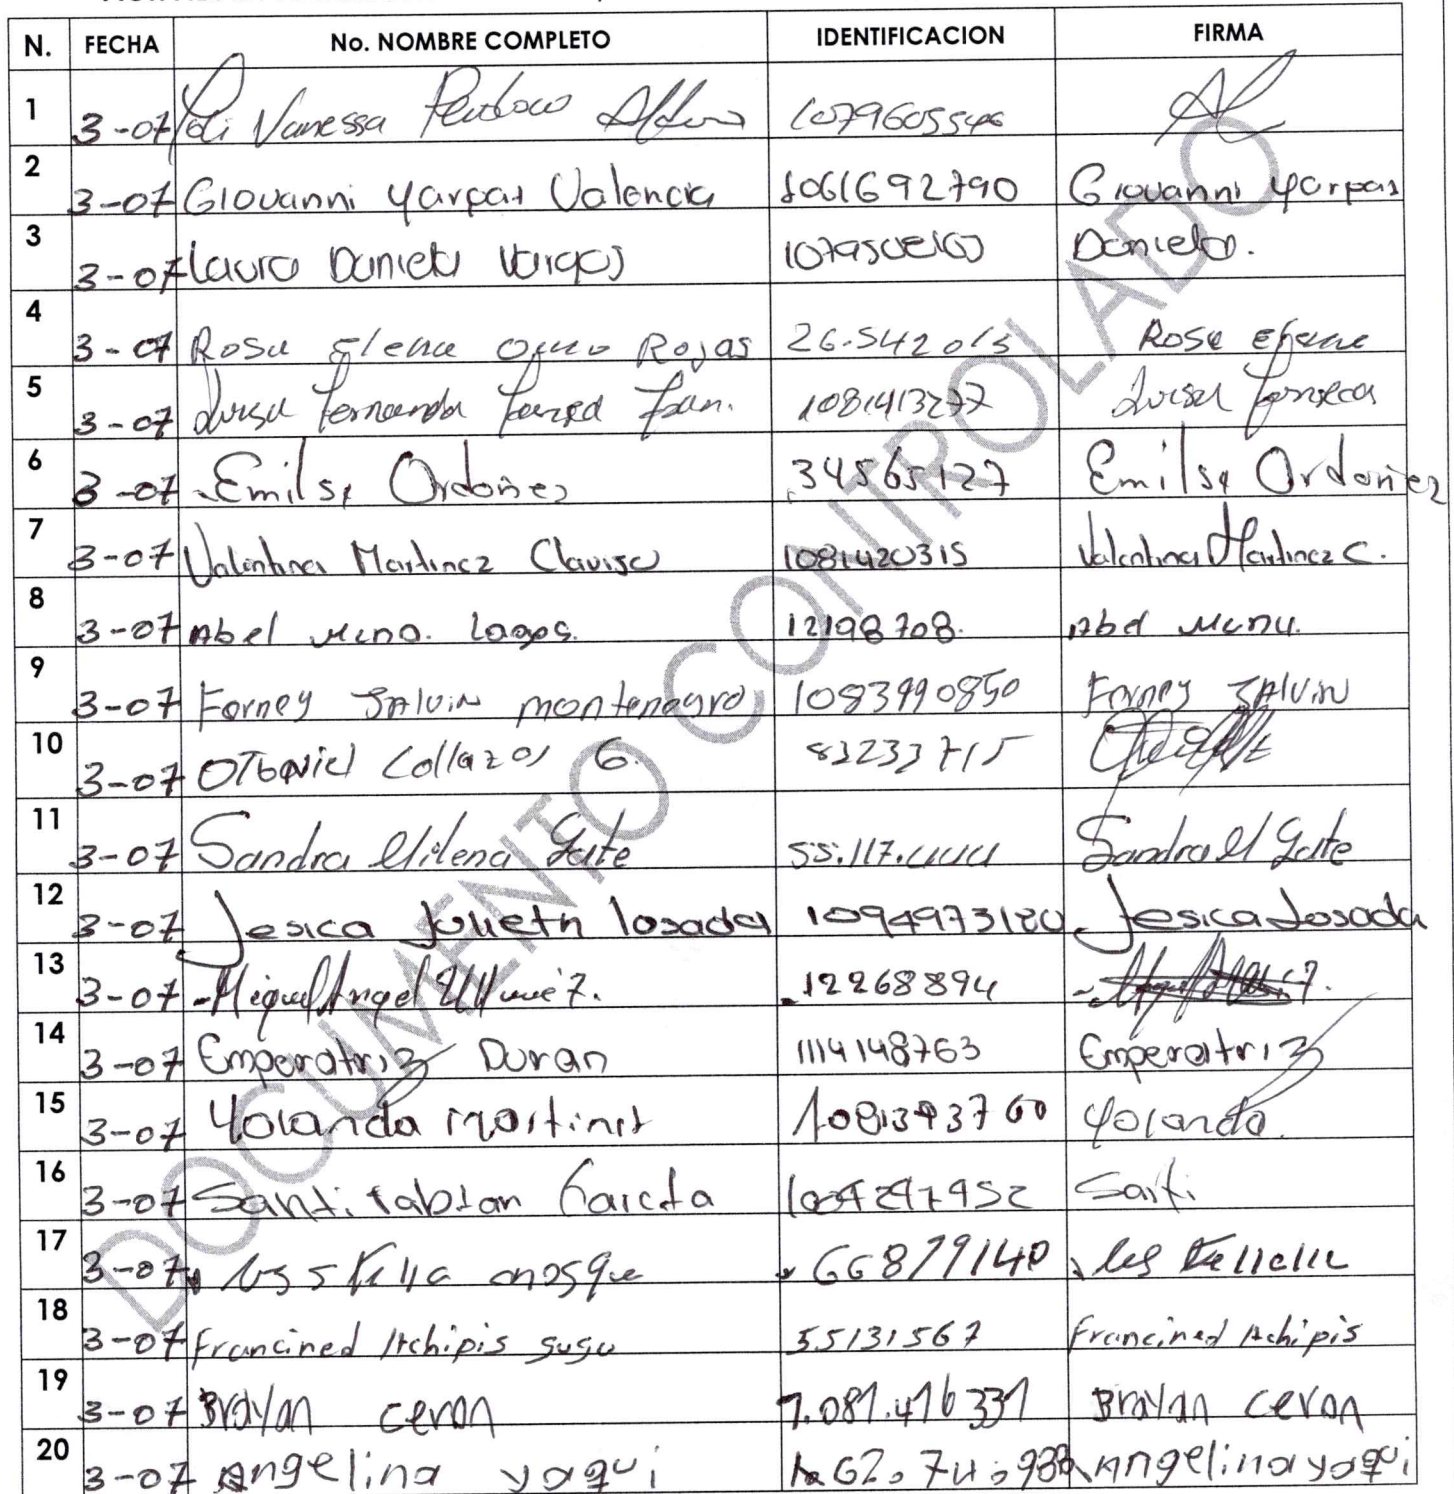 N. FECHA No. NOMBRE COMPLETO IDENTIFICACION FIRMA
1 3-07 Vanessa
2 3-07 Giovanni Yarpas Valencia 1061692790 Giovanni Yarpas
3 3-07 Laura Daniela Vargas Daniela.
4 3-07 Rosa Elena Rojas 26.542013 Rosa Elena
5 3-07 Luisa Fernanda 1081413277 Luisa Fonseca
6 3-07 Emilse Ordoñez 34565127 Emilse Ordoñez
7 3-07 Valentina Martinez Claviso 1081420315 Valentina Martinez C.
8 3-07 Abel Lagos. 12198708. Abel
9 3-07 Forney JAlvin montenegro 1083990850 Forney JAlvin
10 3-07 OTONiel Collazos G. 83233715
11 3-07 Sandra Milena Gaite 55.117.444 Sandra M Gaite
12 3-07 Jesica Julieth losada 1094973180 Jesica Losada
13 3-07 Miguel Angel 12268894
14 3-07 Emperatriz Duran 1114148763 Emperatriz
15 3-07 Yolanda Martinez Yolanda.
16 3-07 Santi fabian Garcia Santi
17 3-07
18 3-07 Francined Achipis susu 55131567 Francined Achipis
19 3-07 Brayan ceron 1.081.416331 Brayan ceron
20 3-07 Angelina yaqui Angelina yaqui
DOCUMENTO CONTROLADO